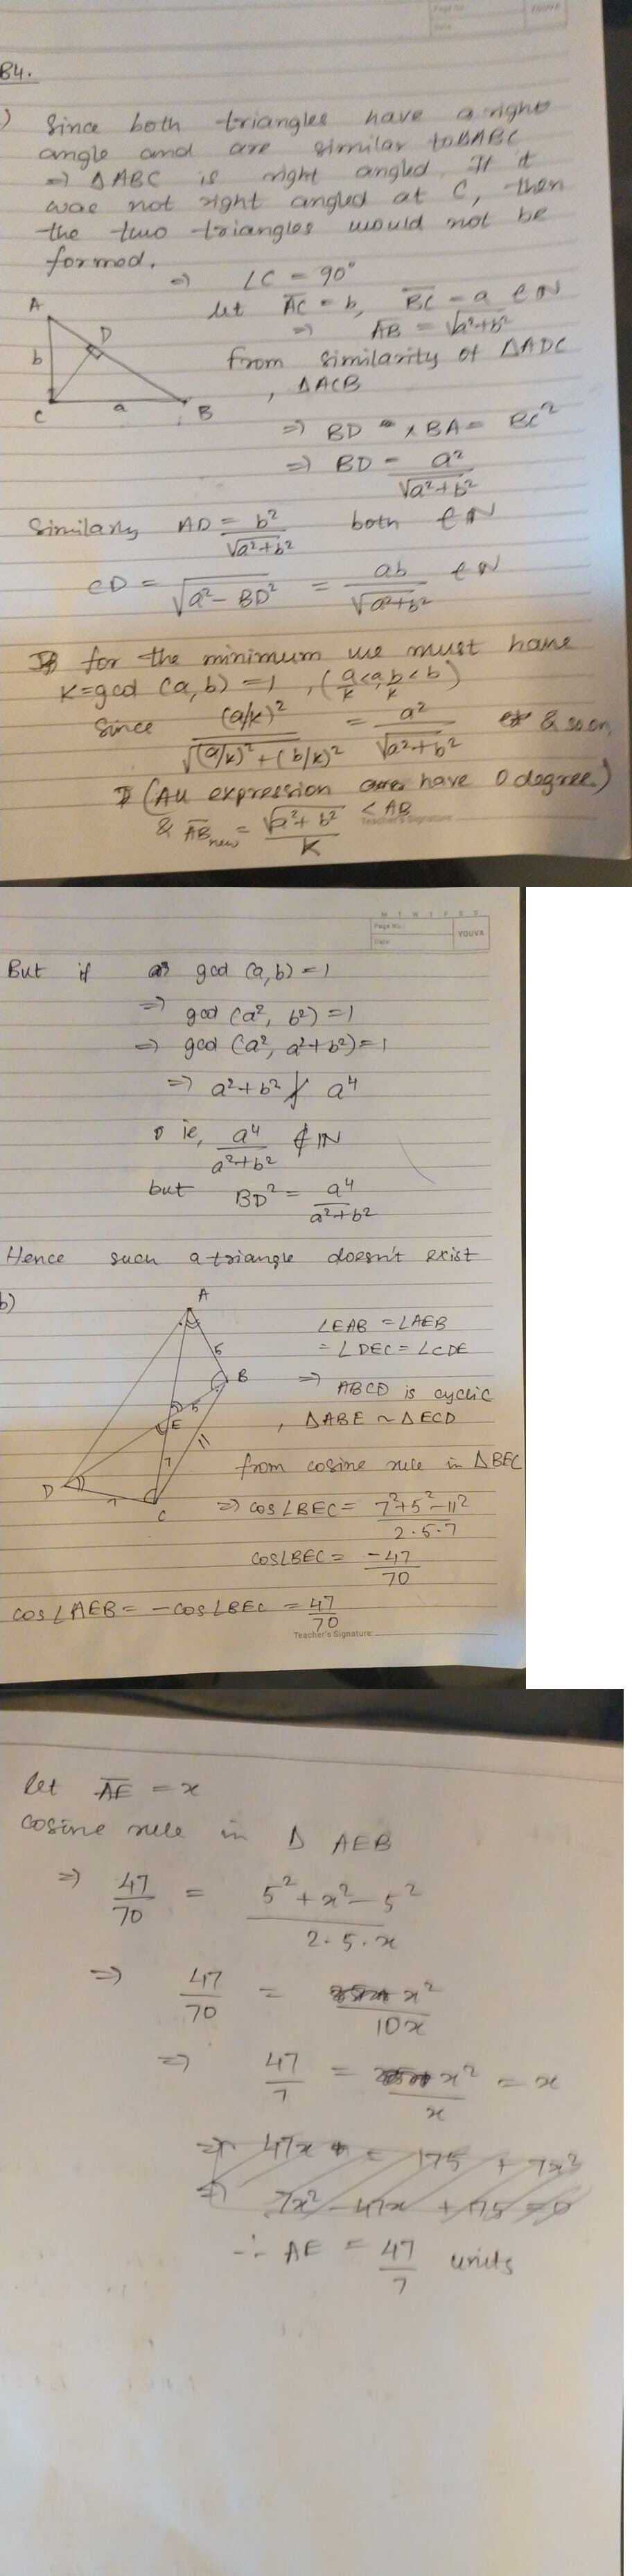 Page No.
YOUVA
Date:
B4.
) Since both triangles have a right
angle and are similar to ΔABC
⇒ ΔABC is right angled. If it
was not right angled at C, then
the two triangles would not be
formed.
⇒ ∠C = 90°
A
D
b
C
a
B
let AC = b, BC = a ∈ N
⇒ AB = √(a²+b²)
from similarity of ΔADC
, ΔACB
⇒ BD × BA = BC²
⇒ BD = a²/√(a²+b²)
Similarly AD = b²/√(a²+b²) both ∈ N
CD = √(a²-BD²) = ab/√(a²+b²) ∈ N
for the minimum we must have
K=gcd (a,b) = 1 , (a/k < a, b/k < b)
Since (a/k)²/√((a/k)²+(b/k)²) = a²/√(a²+b²) & so on
(All expression have 0 degree.)
& AB new = √(a²+b²)/K < AB
Teacher's Signature
M T W T F S S
Page No.:
Date:
YOUVA
But if gcd (a,b) = 1
⇒ gcd (a², b²) = 1
⇒ gcd (a², a²+b²) = 1
⇒ a²+b² ∤ a⁴
ie, a⁴/(a²+b²) ∉ IN
but BD² = a⁴/(a²+b²)
Hence such a triangle doesn't exist
b)
A
5
B
5
E
11
7
D
7
C
∠EAB = ∠AEB
= ∠DEC = ∠CDE
⇒ ABCD is cyclic
, ΔABE ~ ΔECD
from cosine rule in ΔBEC
⇒ cos∠BEC = (7²+5²-11²)/(2.5.7)
cos∠BEC = -47/70
cos∠AEB = -cos∠BEC = 47/70
Teacher's Signature
let AE = x
cosine rule in Δ AEB
⇒ 47/70 = (5²+x²-5²)/(2.5.x)
⇒ 47/70 = x²/10x
⇒ 47/7 = x²/x = x
⇒ 47x = 175 + 7x²
⇒ 7x² - 47x + 175 = 0
∴ AE = 47/7 units